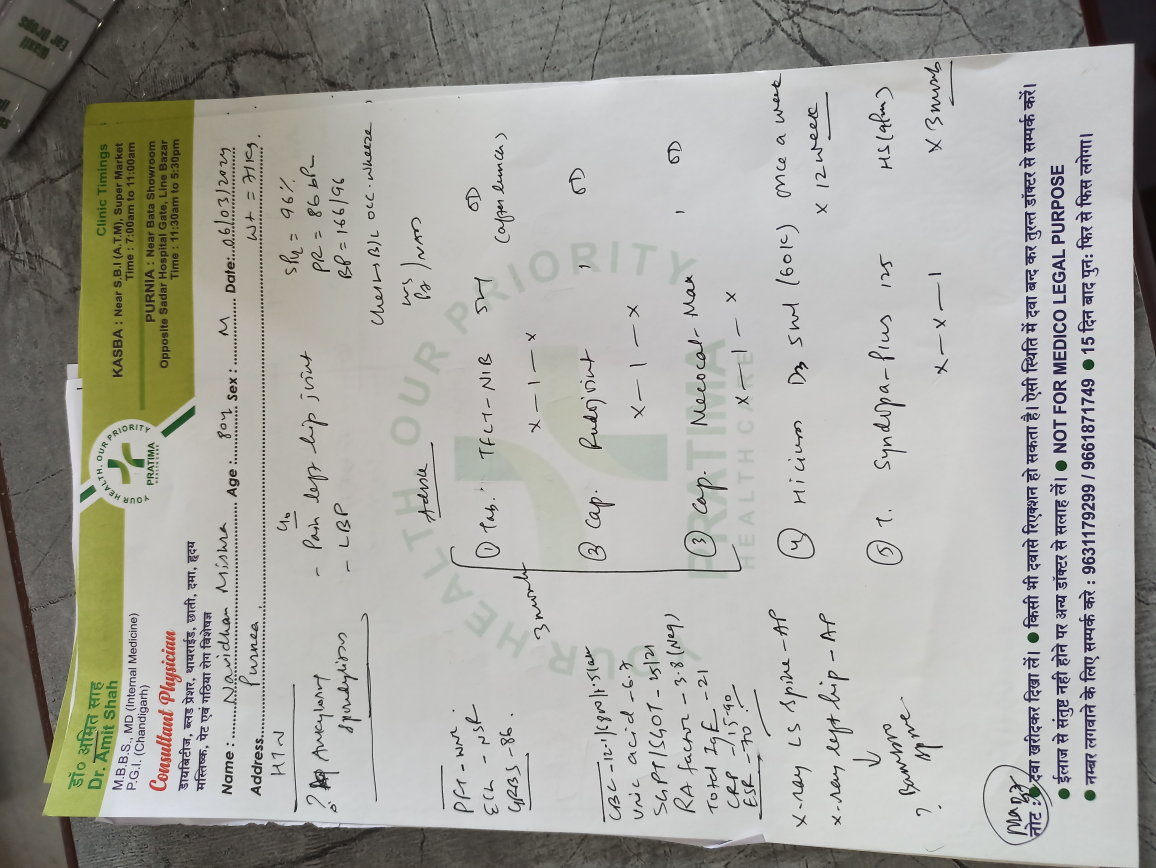 डॉ० अमित साह
Dr. Amit Shah
M.B.B.S., MD (Internal Medicine)
P.G.I. (Chandigarh)
Consultant Physician
डायबिटीज, ब्लड प्रेशर, थायराईड, छाती, दमा, हृदय
मस्तिष्क, पेट एवं गठिया रोग विशेषज्ञ
YOUR HEALTH, OUR PRIORITY
PRATIMA
Clinic Timings
KASBA : Near S.B.I (A.T.M), Super Market
Time : 7:00am to 11:00am
PURNIA : Near Bata Showroom
Opposite Sadar Hospital Gate, Line Bazar
Time : 11:30am to 5:30pm
Name : Navidhan Mishra Age : 80y Sex : M Date: 06/03/2024
Address Purnea Wt = 71Kg.
HTN
? Ankylosing
Spondylitis
c/o
- Pain left hip joint
- LBP
SPO2 = 96%
PR = 86 bPM
BP = 166/96
Chest B/L occ. wheeze
Advice
PFT - WNL
ECG - NSR
GRBS - 86.
3 month
① Tab. TFCT-NIB 5mg OD
x-1-x (after lunch)
② Cap. Rudojoint , OD
x-1-x
③ Cap. Newcal-Max , OD
x-1-x
CBC-12.1/
Uric acid - 6.7
SGPT/SGOT - 15/21
RA factor - 3.8 (Neg)
Total IgE - 21
CRP - 15.90
ESR - 70.
④ Hicium D3 5ml (60K) once a week
x 12 week
X-ray LS Spine - AP
X-ray left hip - AP
↓
? Bamboo
Spine
⑤ T. Syndopa-Plus 125 HS (9pm)
x-x-1 x 3 month
YOUR HEALTH OUR PRIORITY
PRATIMA
HEALTHCARE
नोट : ● दवा खरीदकर दिखा लें। ● किसी भी दवासे रिएक्शन हो सकता है। ऐसी स्थिति में दवा बन्द कर तुरन्त डॉक्टर से सम्पर्क करें।
● ईलाज से संतुष्ट नही होने पर अन्य डॉक्टर से सलाह लें। ● NOT FOR MEDICO LEGAL PURPOSE
● नम्बर लगवाने के लिए सम्पर्क करे : 9631179299 / 9661871749 ● 15 दिन बाद पुन: फिर से फिस लगेगा।